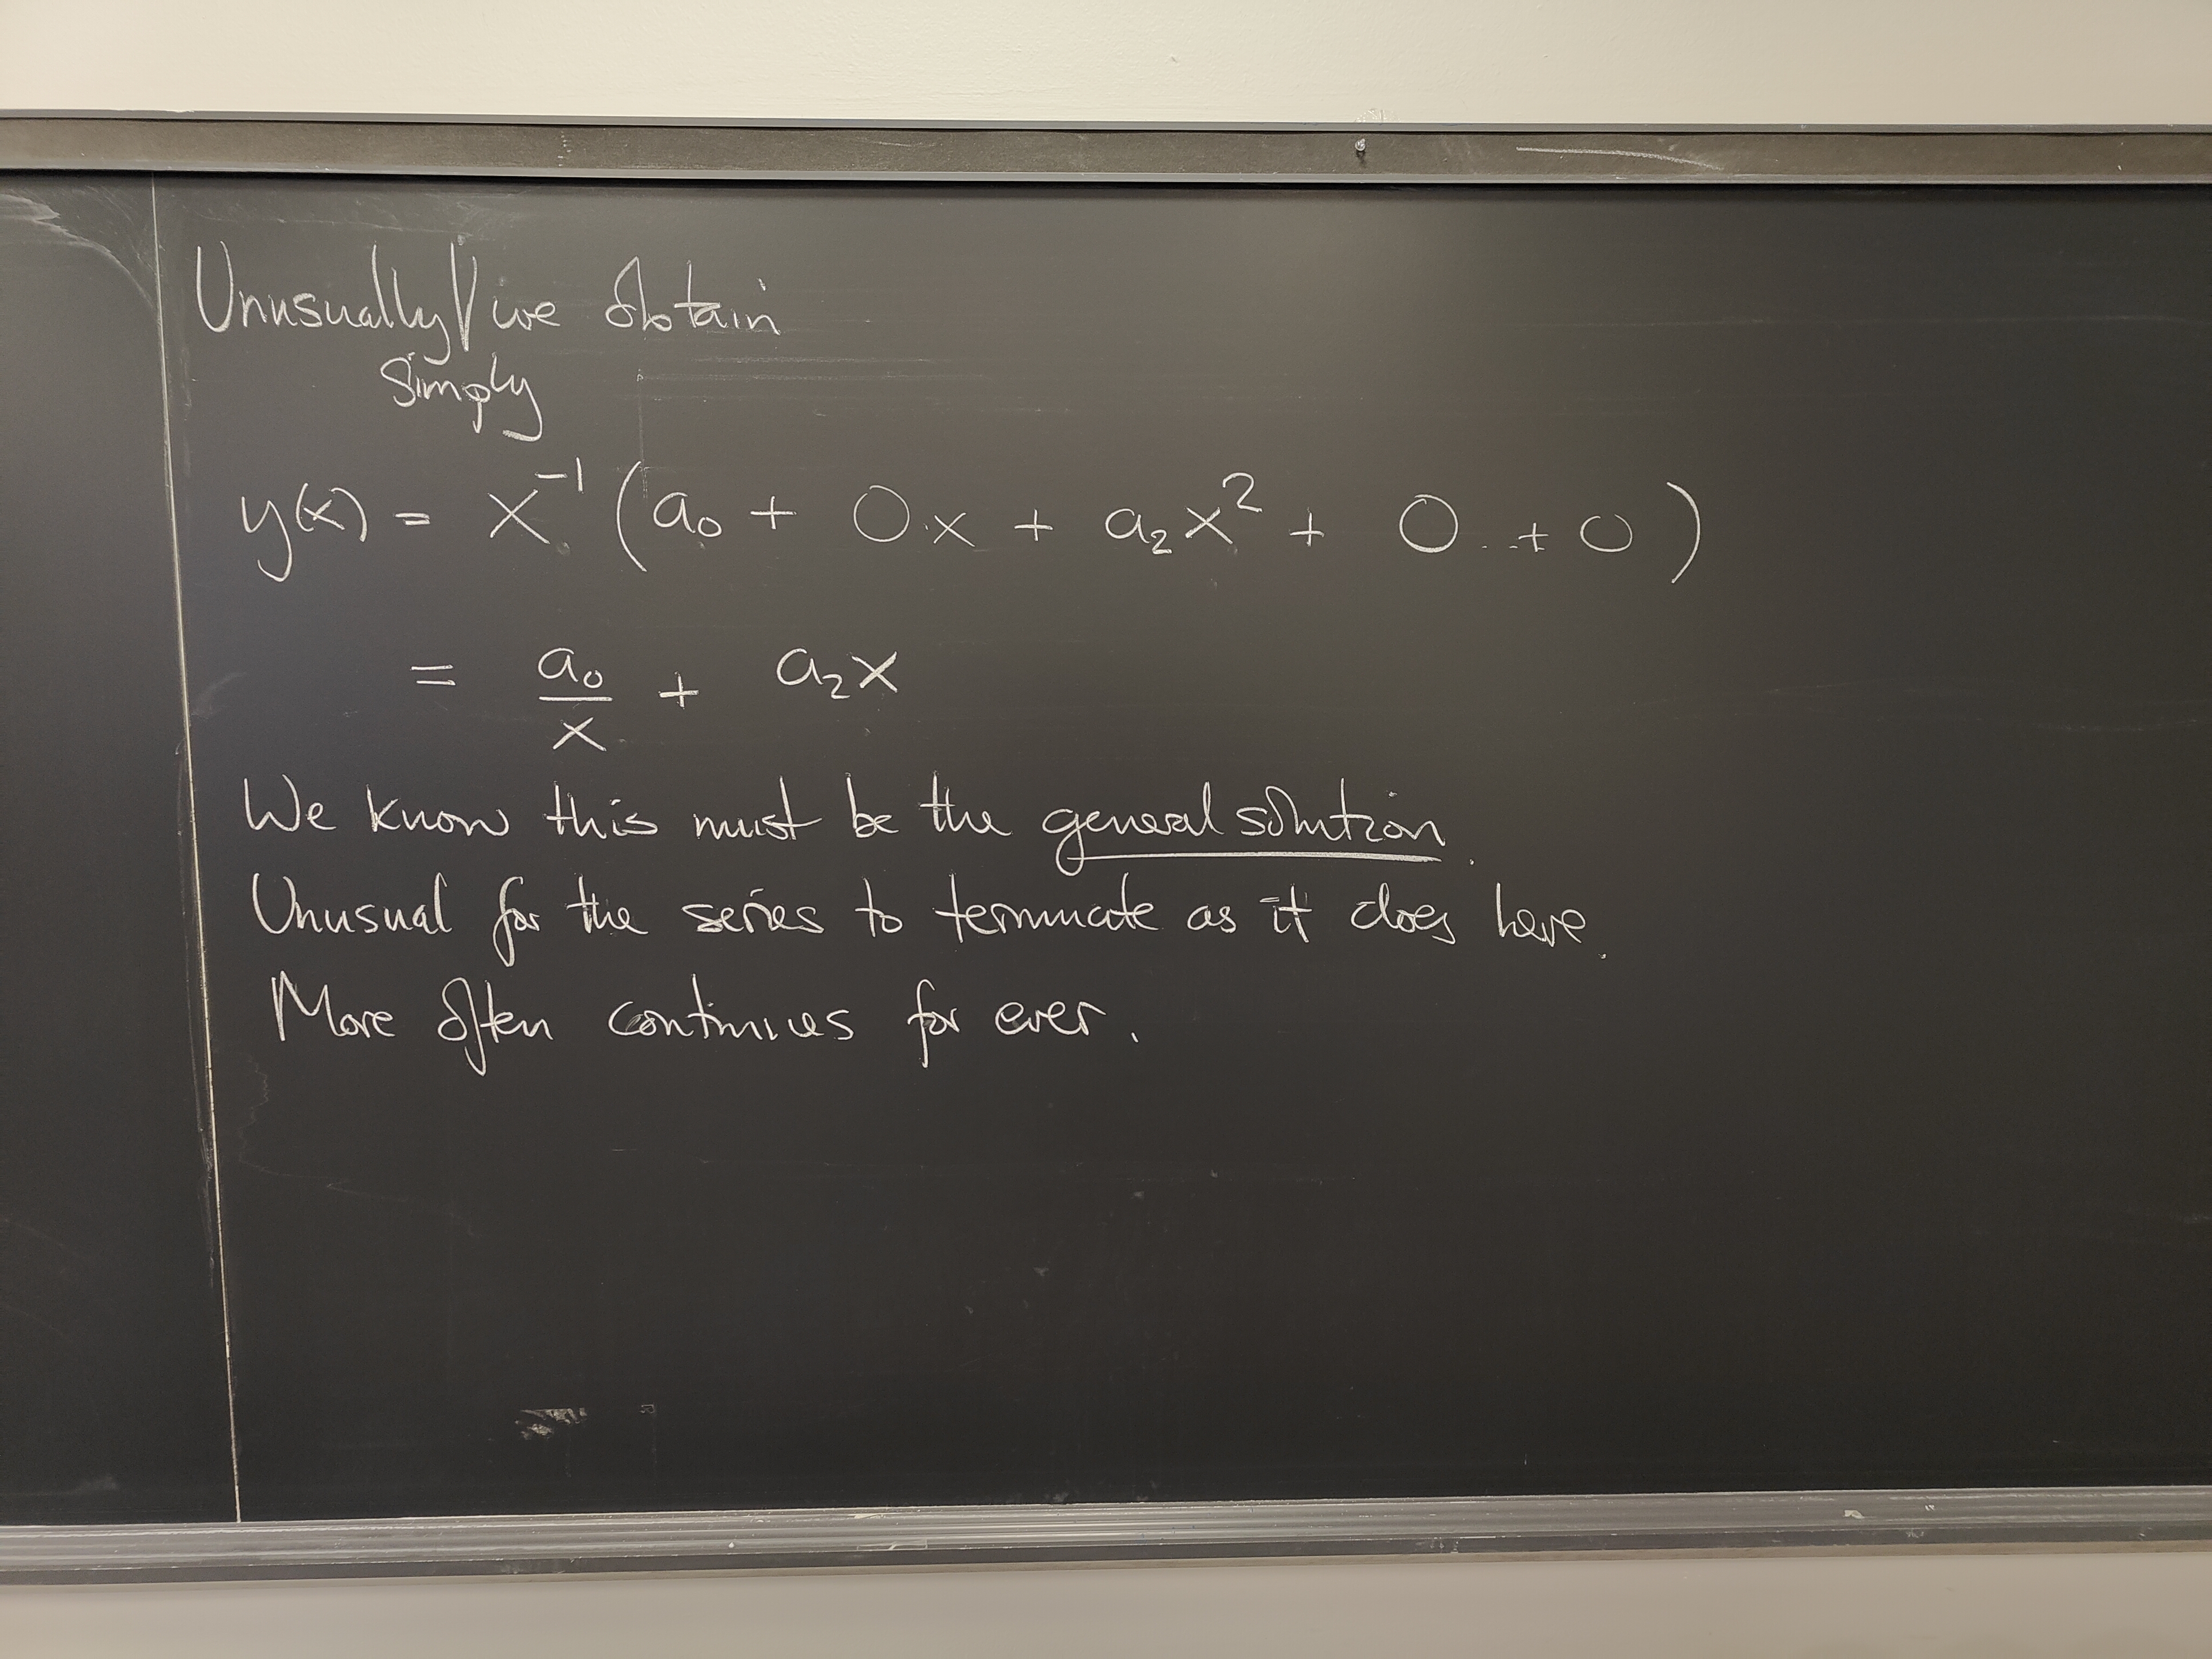 Unusually/we obtain
simply
y(x) = x⁻¹ (a₀ + 0·x + a₂x² + 0 ..+ 0)
= a₀/x + a₂x
We know this must be the general solution.
Unusual for the series to terminate as it does here.
More often continues for ever.